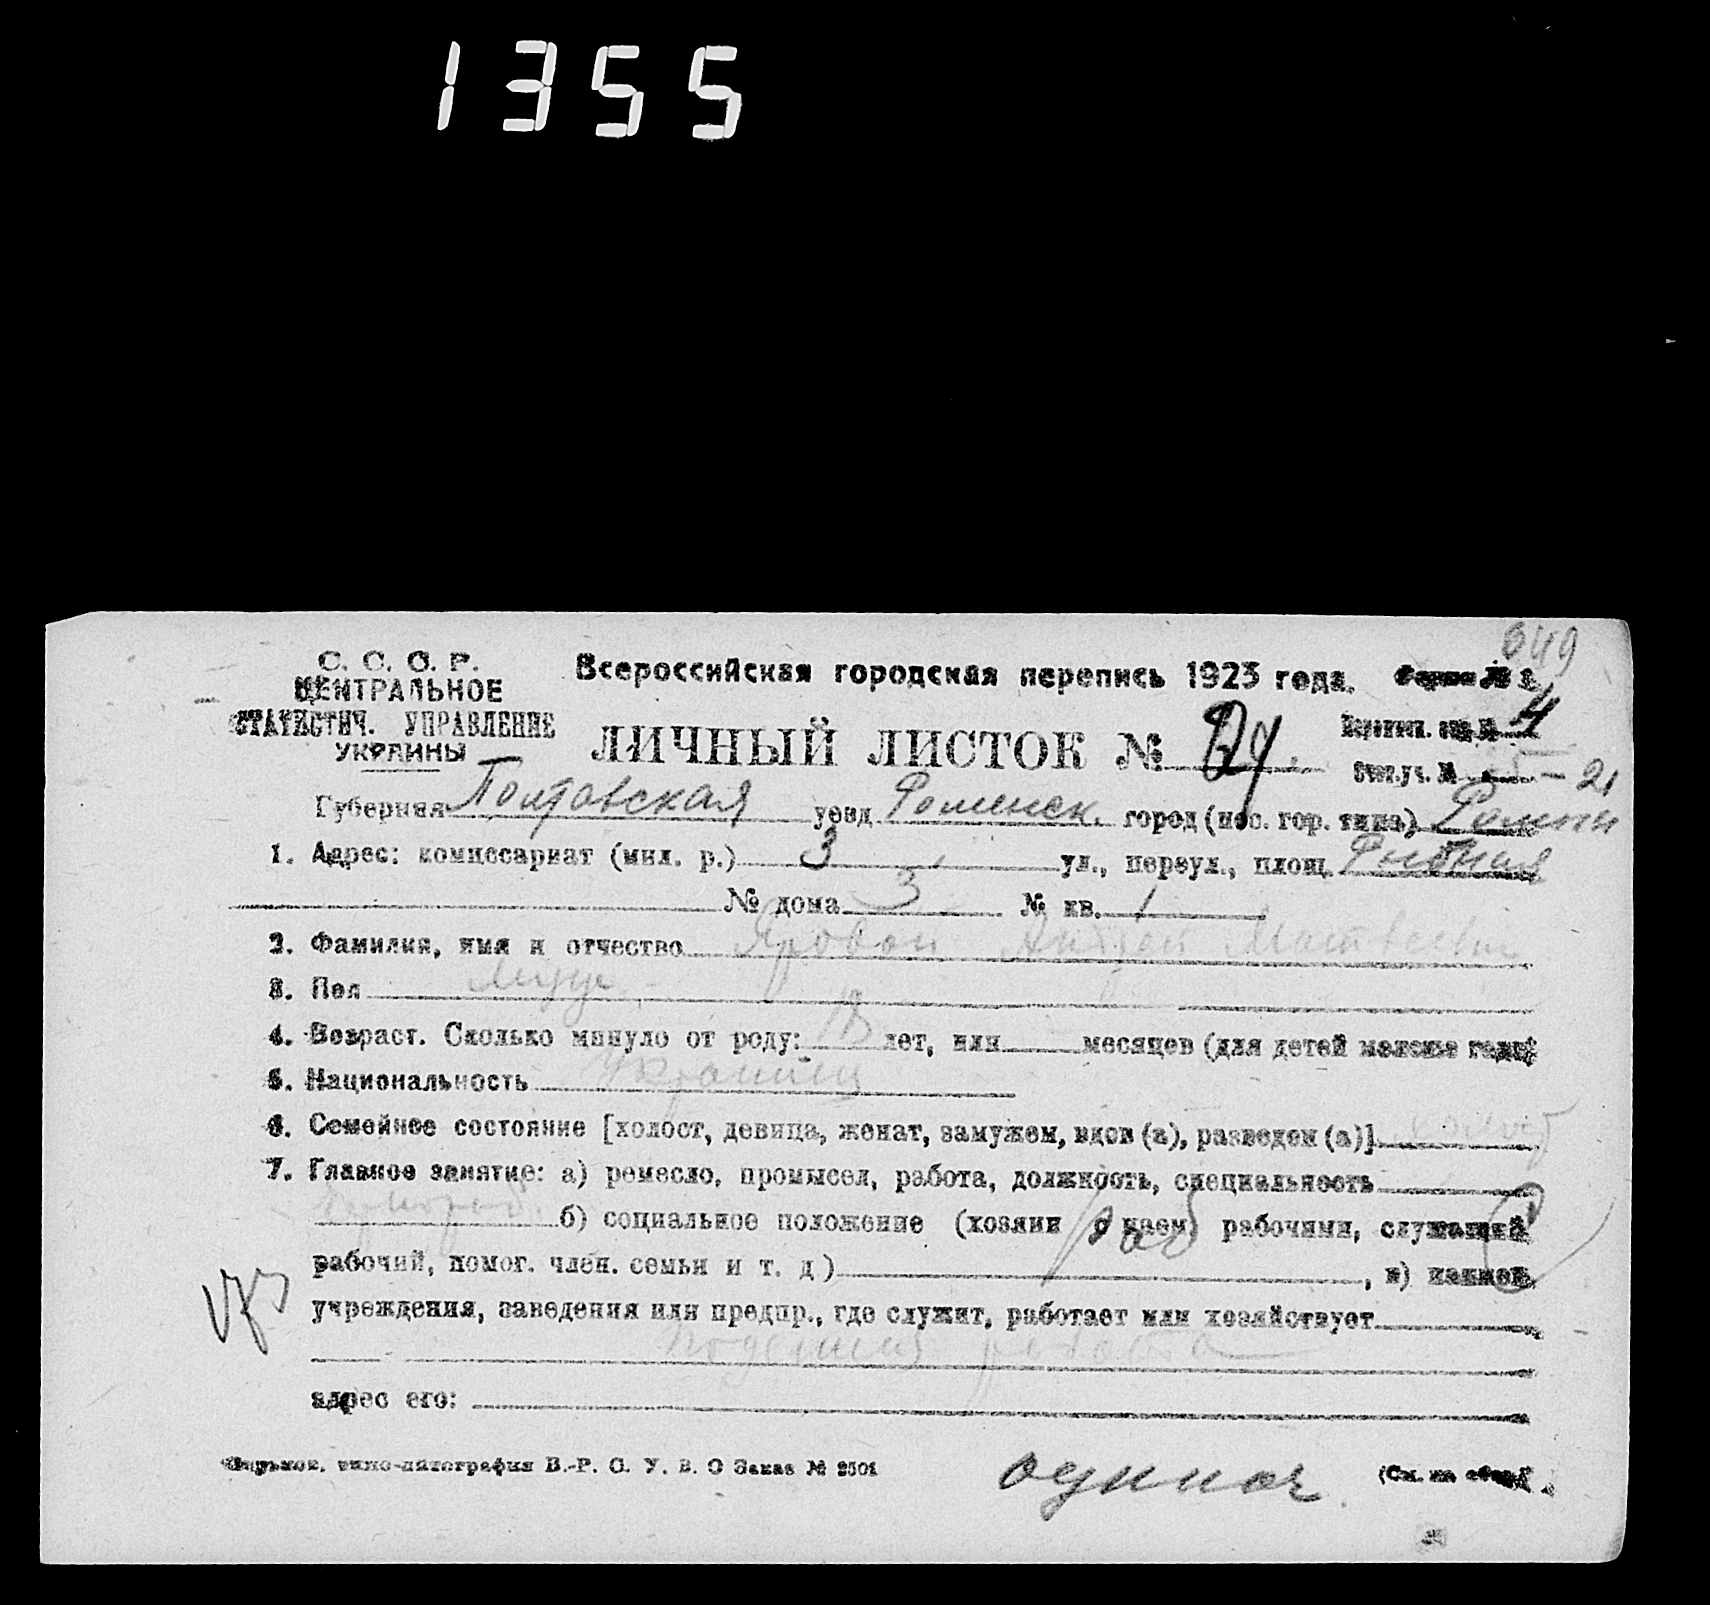 1355
049
С. С. С. Р.
ЦЕНТРАЛЬНОЕ
СТАТИСТИЧ. УПРАВЛЕНИЕ
УКРАИНЫ
Всероссийская городская перепись 1923 года.
ЛИЧНЫЙ ЛИСТОК № 24
4
21
Губерния Полтавская уезд Роменск. город (пос. гор. типа) Ромны
1. Адрес: комиссариат (мил. р.) 3 ул., переул., площ.
№ дома 3 № кв. 1
2. Фамилия, имя и отчество Яровой Андрей Матвеевич
3. Пол муж
4. Возраст. Сколько минуло от роду: 18 лет, или месяцев (для детей моложе года)
5. Национальность Украинец
6. Семейное состояние [холост, девица, женат, замужем, вдов (а), разведен (а)] холост
7. Главное занятие: а) ремесло, промысел, работа, должность, специальность
б) социальное положение (хозяин с наем. рабочими, служащий
рабочий, помог. член. семьи и т. д.) раб , в) наимен.
учреждения, заведения или предпр., где служит, работает или хозяйствует
поденная работа
адрес его:
Харьков. типо-литография В.-Р. С. У. В. О Заказ № 2501
одиноч
(См. на обор.)